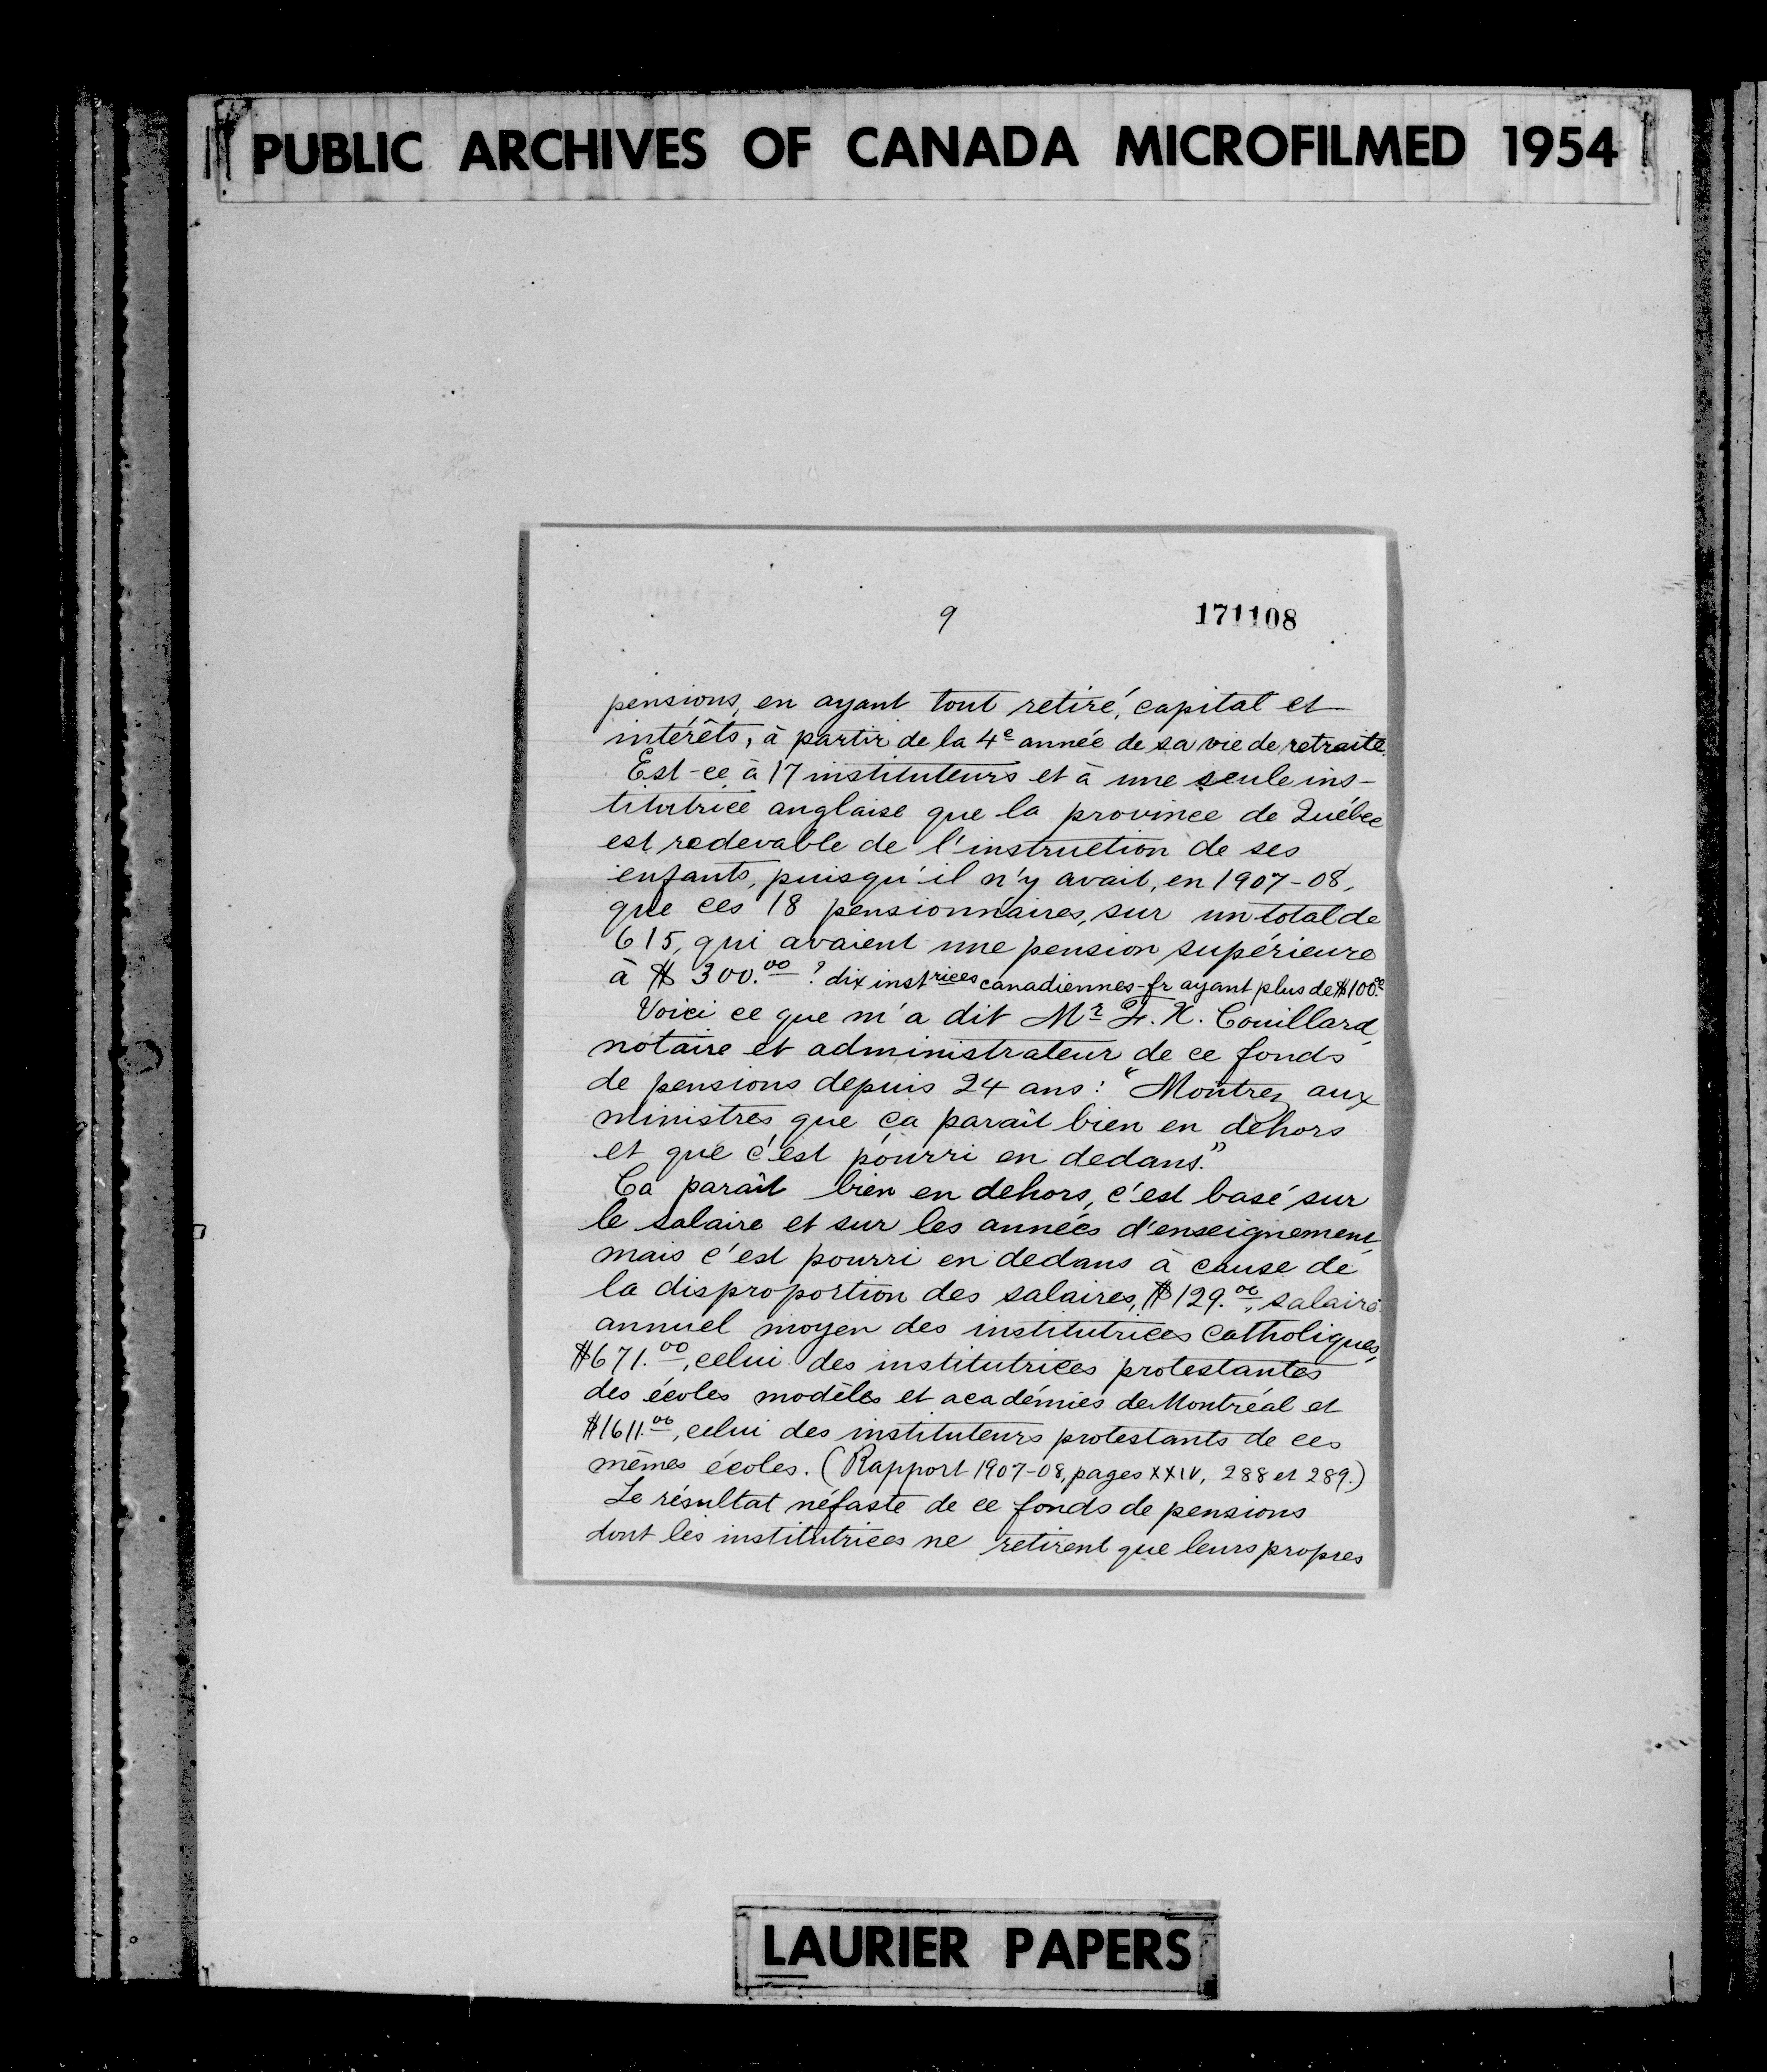 PUBLIC ARCHIVES OF CANADA MICROFILMED 1954
9 171108
pensions, en ayant tout retiré, capital et
intérêts, à partir de la 4e année de sa vie de retraite.
Est-ce à 17 instituteurs et à une seule ins-
titutrice anglaise que la province de Québec
est redevable de l'instruction de ses
enfants, puisqu'il n'y avait, en 1907-08,
que ces 18 pensionnaires, sur un total de
615, qui avaient une pension supérieure
à $300.00? dix instrices canadiennes-fr ayant plus de $100.00
Voici ce que m'a dit Mr F. X. Couillard,
notaire et administrateur de ce fonds
de pensions depuis 24 ans: "Montrez aux
ministres que ça paraît bien en dehors
et que c'est pourri en dedans."
Ça paraît bien en dehors, c'est basé sur
le salaire et sur les années d'enseignement,
mais c'est pourri en dedans à cause de
la disproportion des salaires, $129.00, salaire
annuel moyen des institutrices catholiques,
$671.00, celui des institutrices protestantes
des écoles modèles et académies de Montréal et
$1611.00, celui des instituteurs protestants de ces
mêmes écoles. (Rapport 1907-08, pages XXIV, 288 et 289.)
Le résultat néfaste de ce fonds de pensions
dont les institutrices ne retirent que leurs propres
LAURIER PAPERS